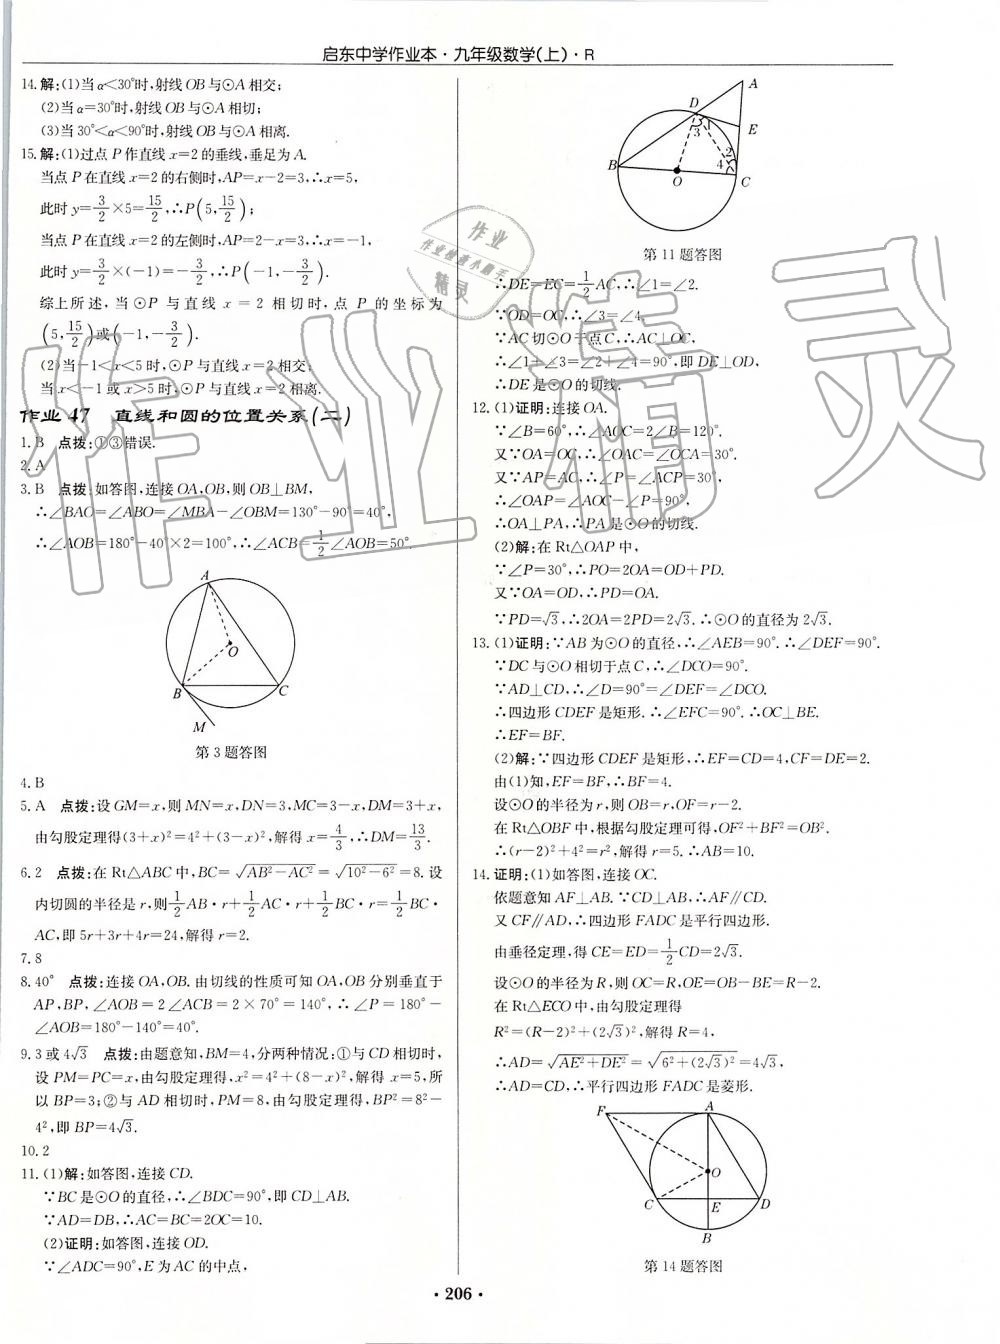 启东中学作业本·九年级数学(上)·R
14.解:(1)当α<30°时,射线OB与⊙A相交;
(2)当α=30°时,射线OB与⊙A相切;
(3)当30°<α<90°时,射线OB与⊙A相离.
15.解:(1)过点P作直线x=2的垂线,垂足为A.
当点P在直线x=2的右侧时,AP=x-2=3,∴x=5,
此时y=3/2×5=15/2,∴P(5,15/2);
当点P在直线x=2的左侧时,AP=2-x=3,∴x=-1,
此时y=3/2×(-1)=-3/2,∴P(-1,-3/2).
综上所述,当⊙P与直线x=2相切时,点P的坐标为
(5,15/2)或(-1,-3/2).
(2)当-1<x<5时,⊙P与直线x=2相交;
当x<-1或x>5时,⊙P与直线x=2相离.
作业47 直线和圆的位置关系(二)
1.B 点拨:①③错误.
2.A
3.B 点拨:如答图,连接OA,OB,则OB⊥BM,
∴∠BAO=∠ABO=∠MBA-∠OBM=130°-90°=40°,
∴∠AOB=180°-40°×2=100°,∴∠ACB=1/2∠AOB=50°.
A
O
B
C
M
第3题答图
4.B
5.A 点拨:设GM=x,则MN=x,DN=3,MC=3-x,DM=3+x,
由勾股定理得(3+x)²=4²+(3-x)²,解得x=4/3,∴DM=13/3.
6.2 点拨:在Rt△ABC中,BC=√(AB²-AC²)=√(10²-6²)=8.设
内切圆的半径是r,则1/2AB·r+1/2AC·r+1/2BC·r=1/2BC·
AC,即5r+3r+4r=24,解得r=2.
7.8
8.40° 点拨:连接OA,OB.由切线的性质可知OA,OB分别垂直于
AP,BP,∠AOB=2∠ACB=2×70°=140°,∴∠P=180°-
∠AOB=180°-140°=40°.
9.3或4√3 点拨:由题意知,BM=4,分两种情况:①与CD相切时,
设PM=PC=x,由勾股定理得,x²=4²+(8-x)²,解得x=5,所
以BP=3;②与AD相切时,PM=8,由勾股定理得,BP²=8²-
4²,即BP=4√3.
10.2
11.(1)解:如答图,连接CD.
∵BC是⊙O的直径,∴∠BDC=90°,即CD⊥AB.
∵AD=DB,∴AC=BC=2OC=10.
(2)证明:如答图,连接OD.
∵∠ADC=90°,E为AC的中点,
A
D
E
1
3
2
B
4
O
C
第11题答图
∴DE=EC=1/2AC,∴∠1=∠2.
∵OD=OC,∴∠3=∠4.
∵AC切⊙O于点C,∴AC⊥OC,
∴∠1+∠3=∠2+∠4=90°,即DE⊥OD,
∴DE是⊙O的切线.
12.(1)证明:连接OA.
∵∠B=60°,∴∠AOC=2∠B=120°.
又∵OA=OC,∴∠OAC=∠OCA=30°.
又∵AP=AC,∴∠P=∠ACP=30°,
∴∠OAP=∠AOC-∠P=90°,
∴OA⊥PA,∴PA是⊙O的切线.
(2)解:在Rt△OAP中,
∵∠P=30°,∴PO=2OA=OD+PD.
又∵OA=OD,∴PD=OA.
∵PD=√3,∴2OA=2PD=2√3.∴⊙O的直径为2√3.
13.(1)证明:∵AB为⊙O的直径,∴∠AEB=90°,∴∠DEF=90°.
∵DC与⊙O相切于点C,∴∠DCO=90°.
∵AD⊥CD,∴∠D=90°=∠DEF=∠DCO.
∴四边形CDEF是矩形.∴∠EFC=90°.∴OC⊥BE.
∴EF=BF.
(2)解:∵四边形CDEF是矩形,∴EF=CD=4,CF=DE=2.
由(1)知,EF=BF,∴BF=4.
设⊙O的半径为r,则OB=r,OF=r-2.
在Rt△OBF中,根据勾股定理可得,OF²+BF²=OB².
∴(r-2)²+4²=r²,解得r=5.∴AB=10.
14.证明:(1)如答图,连接OC.
依题意知AF⊥AB.∵CD⊥AB,∴AF∥CD.
又CF∥AD,∴四边形FADC是平行四边形.
由垂径定理,得CE=ED=1/2CD=2√3.
设⊙O的半径为R,则OC=R,OE=OB-BE=R-2.
在Rt△ECO中,由勾股定理得
R²=(R-2)²+(2√3)²,解得R=4,
∴AD=√(AE²+DE²)=√(6²+(2√3)²)=4√3,
∴AD=CD,∴平行四边形FADC是菱形.
F
A
O
C
E
D
B
第14题答图
·206·
作业精灵
作业
作业检查小助手
精灵